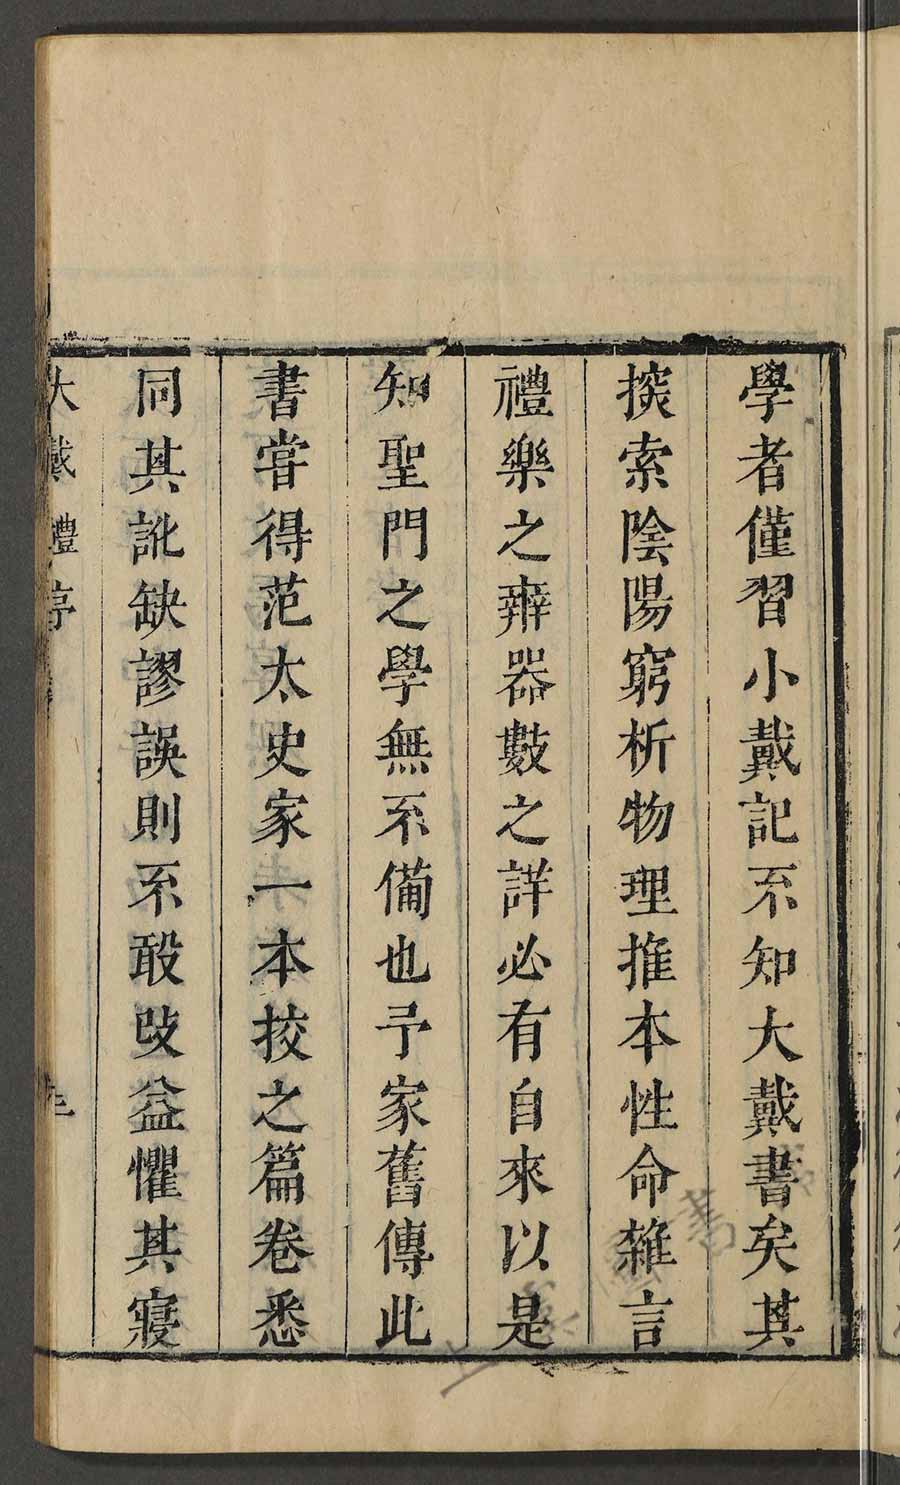 學者僅習小戴記不知大戴書矣其
探索陰陽窮析物理推本性命雜言
禮樂之辨器數之詳必有自來以是
知聖門之學無不備也予家舊傳此
書嘗得范太史家一本挍之篇卷悉
同其訛缺謬誤則不敢改益懼其寖
大戴禮序